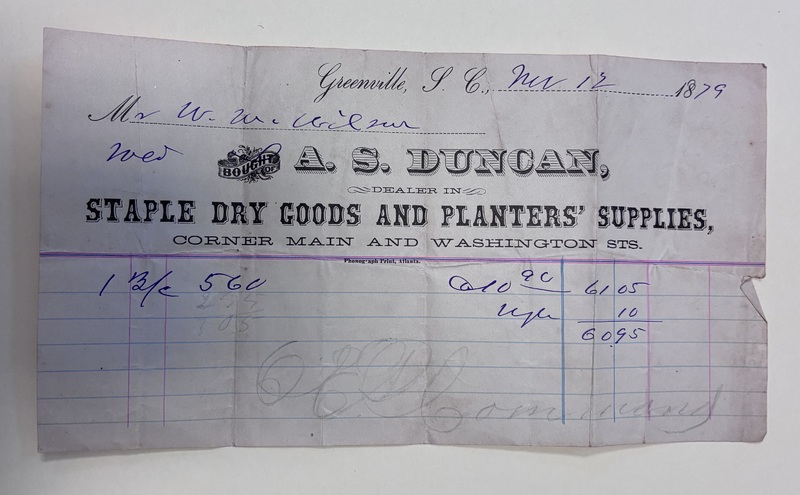 Greenville, S. C., Nov 12 1879
Mr W. M. Wilson
BOUGHT OF A. S. DUNCAN,
DEALER IN
STAPLE DRY GOODS AND PLANTERS' SUPPLIES,
CORNER MAIN AND WASHINGTON STS.
Phonograph Print, Atlanta.
1 B/c 560 10 90 61 05
10
60 95